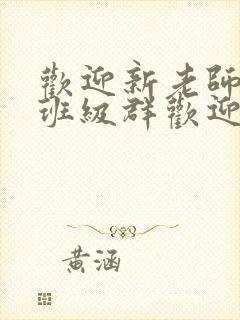 歡迎新老師
班級群歡迎
黃涵